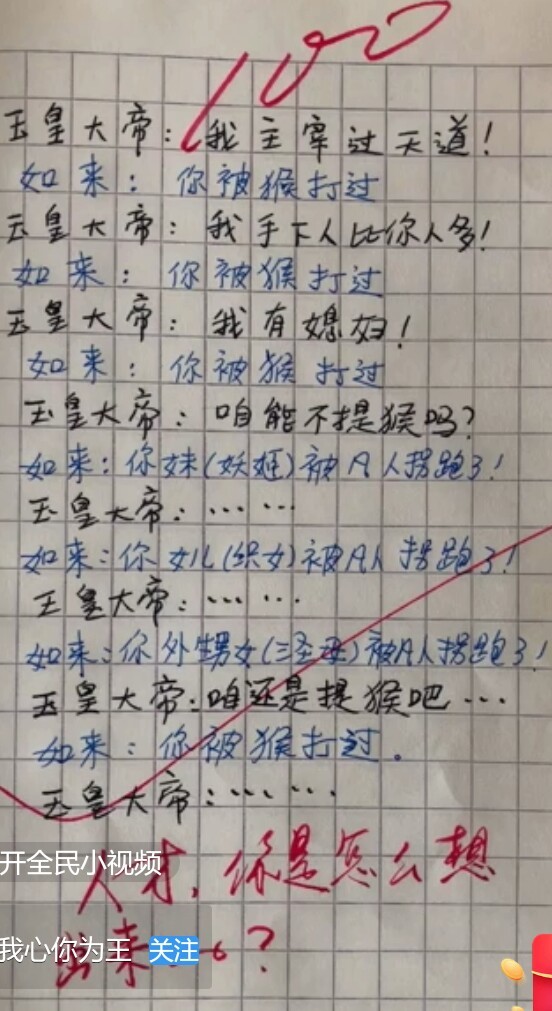 100
玉皇大帝：我主宰过天道！
如来：你被猴打过
玉皇大帝：我手下人比你人多！
如来：你被猴打过
玉皇大帝：我有媳妇！
如来：你被猴打过
玉皇大帝：咱能不提猴吗？
如来：你妹(妖姬)被凡人拐跑了！
玉皇大帝：……
如来：你女儿(织女)被凡人拐跑了！
玉皇大帝：……
如来：你外甥女(三圣母)被凡人拐跑了！
玉皇大帝：咱还是提猴吧…
如来：你被猴打过.
玉皇大帝：……
开全民小视频
人才，你是怎么想
我心你为王 关注
出来？